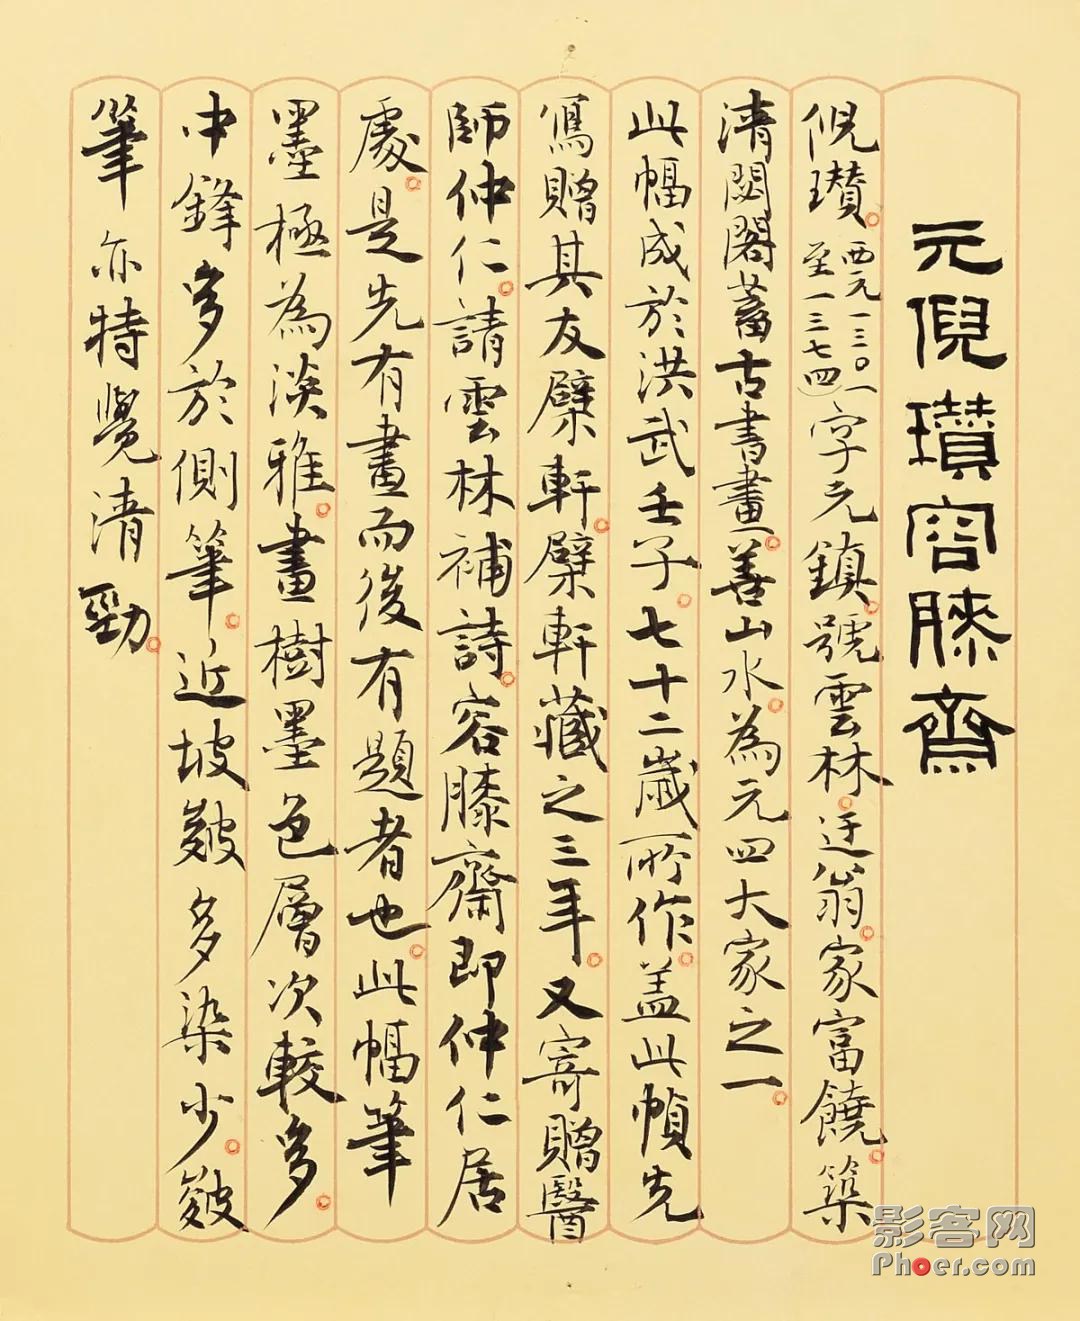 元倪瓚容膝齋
倪瓚。西元一三〇一至一三七四字元鎮。號雲林。迂翁。家富饒。築
清閟閣蓄古書畫。善山水。為元四大家之一。
此幅成於洪武壬子。七十二歲所作。盖此幀先
寫贈其友檗軒。檗軒藏之三年。又寄贈醫
師仲仁。請雲林補詩。容膝齋即仲仁居
處。是先有畫而後有題者也。此幅筆
墨極為淡雅。畫樹墨色層次較多。
中鋒多於側筆。近坡皴多染少。皴
筆亦特覺清勁。
影客网
Phoer.com